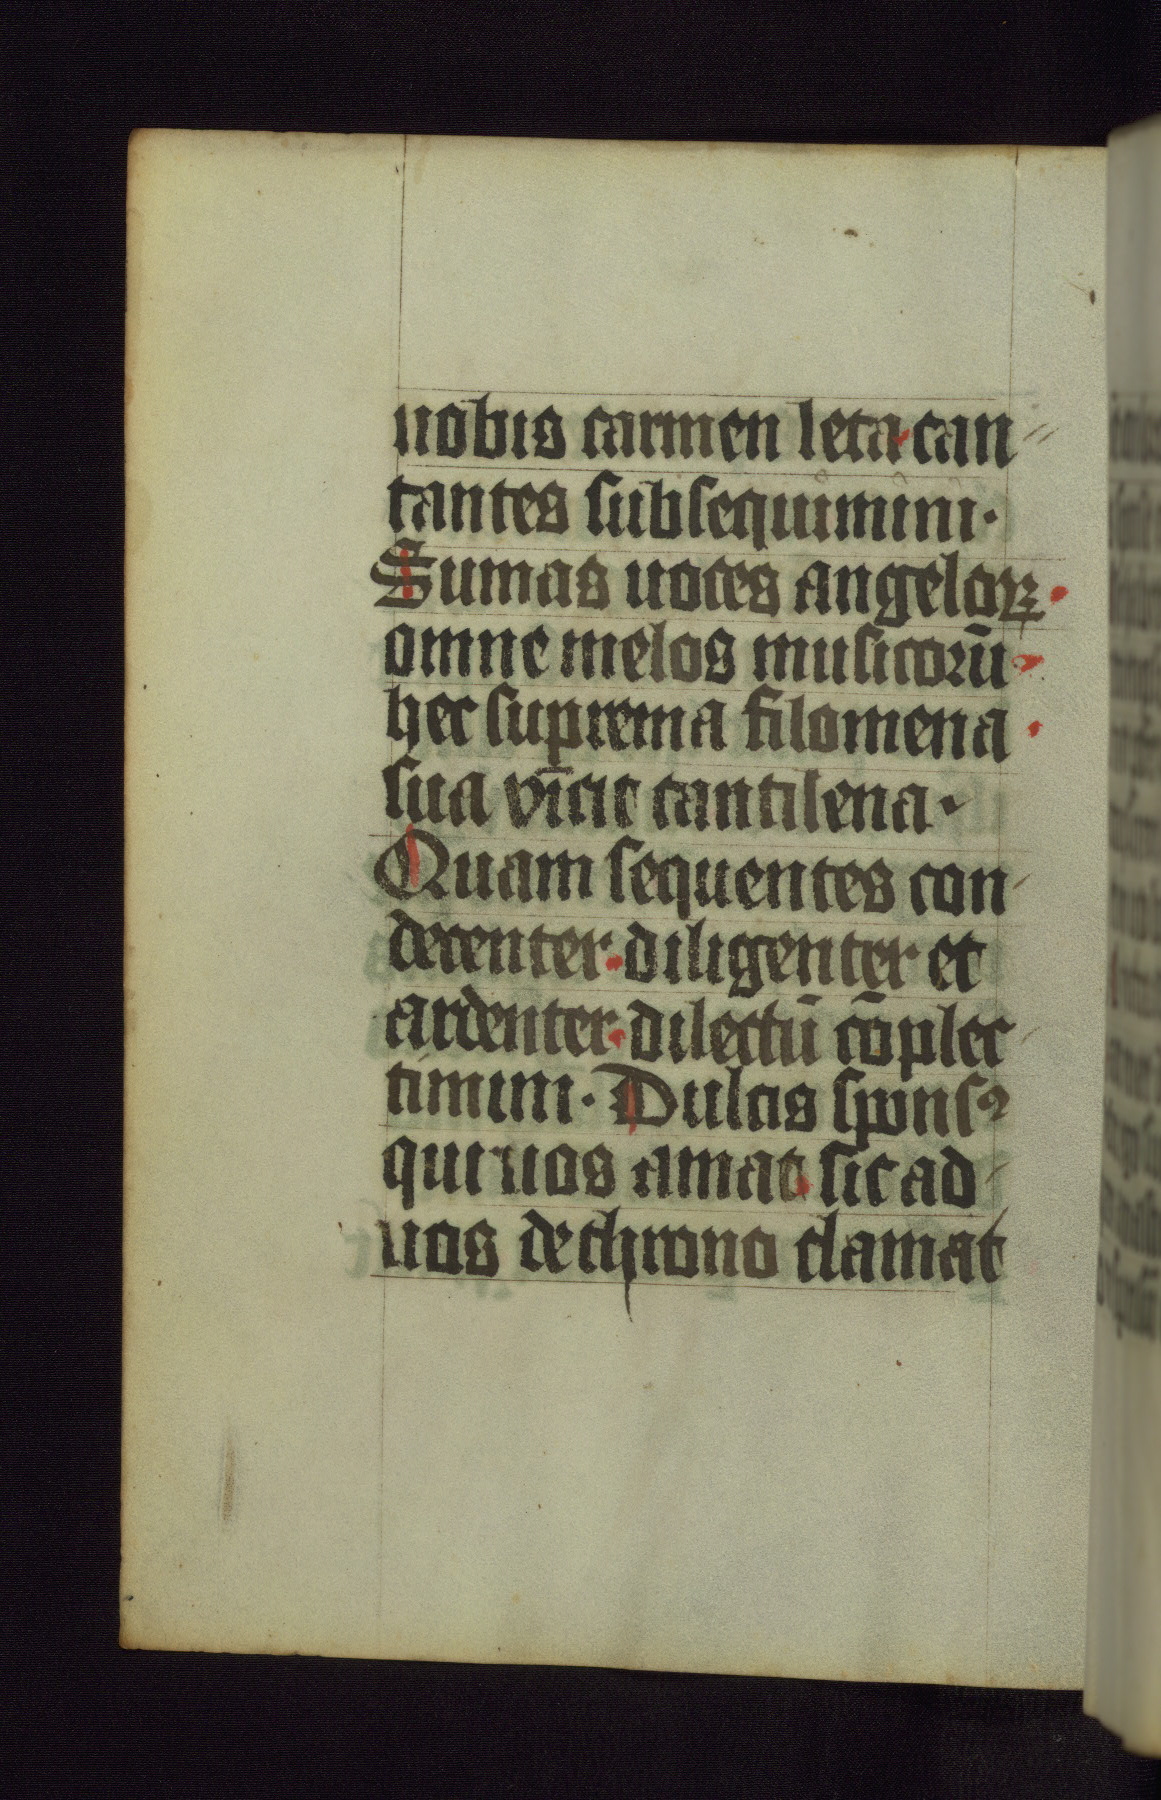 uobis carmen leta can
tantes subsequimini·
Sumas uoces angeloꝝ
omne melos musicorū
hec suprema filomena
sua vīcit cantilena·
Quam sequentes con
decenter diligenter et
ardenter dilectū cōplec
timini· Dulcis sponsꝰ
qui uos amat sic ad
uos de throno clamat